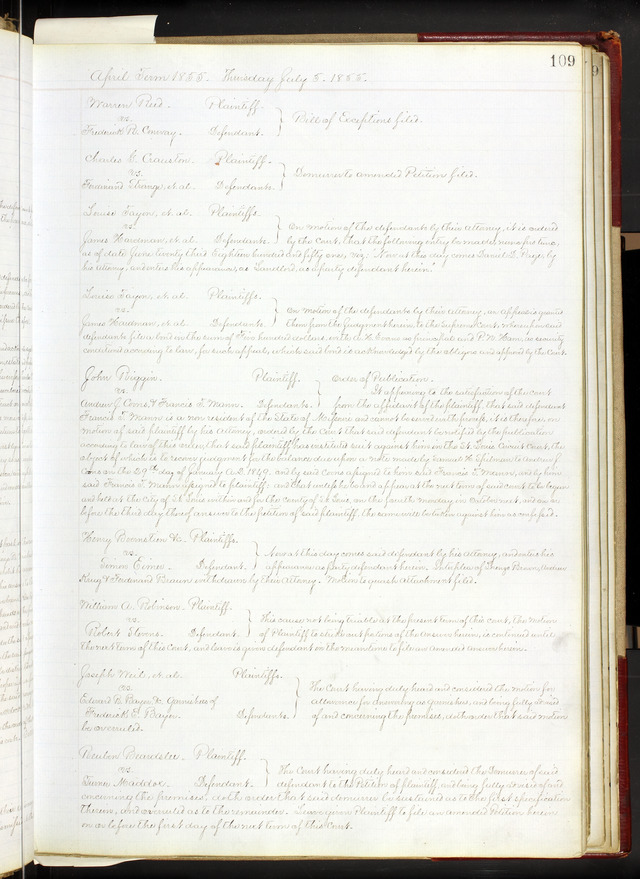 109
April Term 1855. Thursday July 5. 1855.
Warren Reed. Plaintiff.
vs. Bill of Exceptions filed.
Frederick R. Conway. Defendant.
Charles C. Plaintiff.
vs. Demurrer to amended Petition filed.
Ferdinand et. al. Defendants.
Louise et. al. Plaintiffs.
vs. On motion of the defendants by their Attorney, it is ordered
James Hardman, et. al. Defendants. by the Court, that the following entry be made nunc pro tunc,
as of date June twenty third Eighteen hundred and fifty one, viz: Now at this day comes Daniel D. Page, by
his attorney, and enters his appearance, as Landlord, as a party defendant herein.
Louise et. al. Plaintiffs.
vs. On motion of the defendants by their Attorney, an appeal is granted
James Hardman, et. al. Defendants. them from the judgment herein to the Supreme Court, whereupon said
defendants file a bond in the sum of Five hundred dollars, with and as security
conditioned according to law, for such appeal, which said bond is acknowledged by the obligors and approved by the Court.
John Plaintiff. Order of Publication.
vs. It appearing to the satisfaction of the Court
Andrew J. & Francis F. Mann. Defendants. from the affidavit of the plaintiff, that said defendant
Francis F. Mann is a non resident of the State of Missouri and cannot be served with process, it is therefore, on
motion of said plaintiff by his Attorney, ordered by the Court that said defendant be notified by the publication
according to law of this order, that said plaintiff has instituted suit against him in the St. Louis Circuit Court, the
object of which is to recover judgment for the balance due upon a note made by to Andrew J.
on the 29th day of January A.D. 1849. and by said assigned to said Francis F. Mann, and by him
said Francis F. Mann assigned to plaintiff. and that unless he be and appear at the next term of said court to be begun
and held at the City of St. Louis within and for the County of St. Louis, on the fourth monday in October next, and on or
before the third day thereof answer to the petition of said plaintiff, the same will be taken against him as confessed.
Henry Bernstein &c. Plaintiffs.
vs. Now at this day comes said defendant by his Attorney, and enters his
Eimer. Defendant. appearance as party defendant herein. Interpleas of George
King & Ferdinand Braun and by their Attorney. Motion to quash Attachment filed.
William A. Robinson. Plaintiff.
vs. This cause not being triable at the present term of this Court, the Motion
Robert Stevens. Defendant. of Plaintiff to strike out portions of the Answer herein, is continued until
the next term of this Court, and leave is given defendant in the meantime to file an amended answer herein.
Joseph Weil, et. al. Plaintiffs.
vs. The Court having duly heard and considered the motion for
Edward B. Bayer &c. Garnishees of allowance for as garnishee, and being fully advised
Frederick E. Bayer. Defendants. of and concerning the premises, doth order that said motion
be overruled.
Reuben Beardslee. Plaintiff.
vs. The Court having duly heard and considered the Demurrer of said
Turner Maddox. Defendant. defendant to the Petition of plaintiff, and being fully advised of and
concerning the premises, doth order that said demurrer be sustained as to the first specification
therein, and overruled as to the remainder. Leave given Plaintiff to file an amended Petition herein
on or before the first day of the next term of this Court.